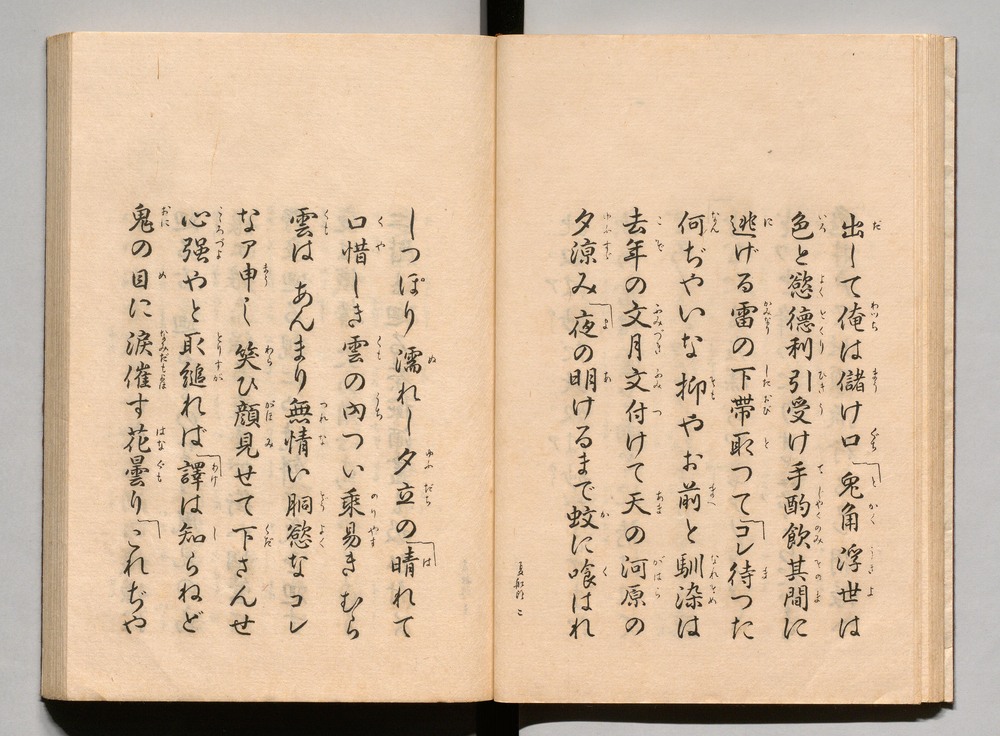 出して俺は儲け口「兎角浮世は
色と慾徳利引受け手酌飲其間に
逃げる雷の下帯取つて「コレ待つた
何ぢやいな抑やお前と馴染は
去年の文月文付けて天の河原の
夕涼み「夜の明けるまで蚊に喰はれ
しつぽり濡れし夕立の「晴れて
口惜しき雲の内つい乗易きむら
雲は あんまり無情い胴慾なコレ
なア申し 笑ひ顔見せて下さんせ
心强やと取縋れば「譯は知らねど
鬼の目に涙催す花曇り「これぢや